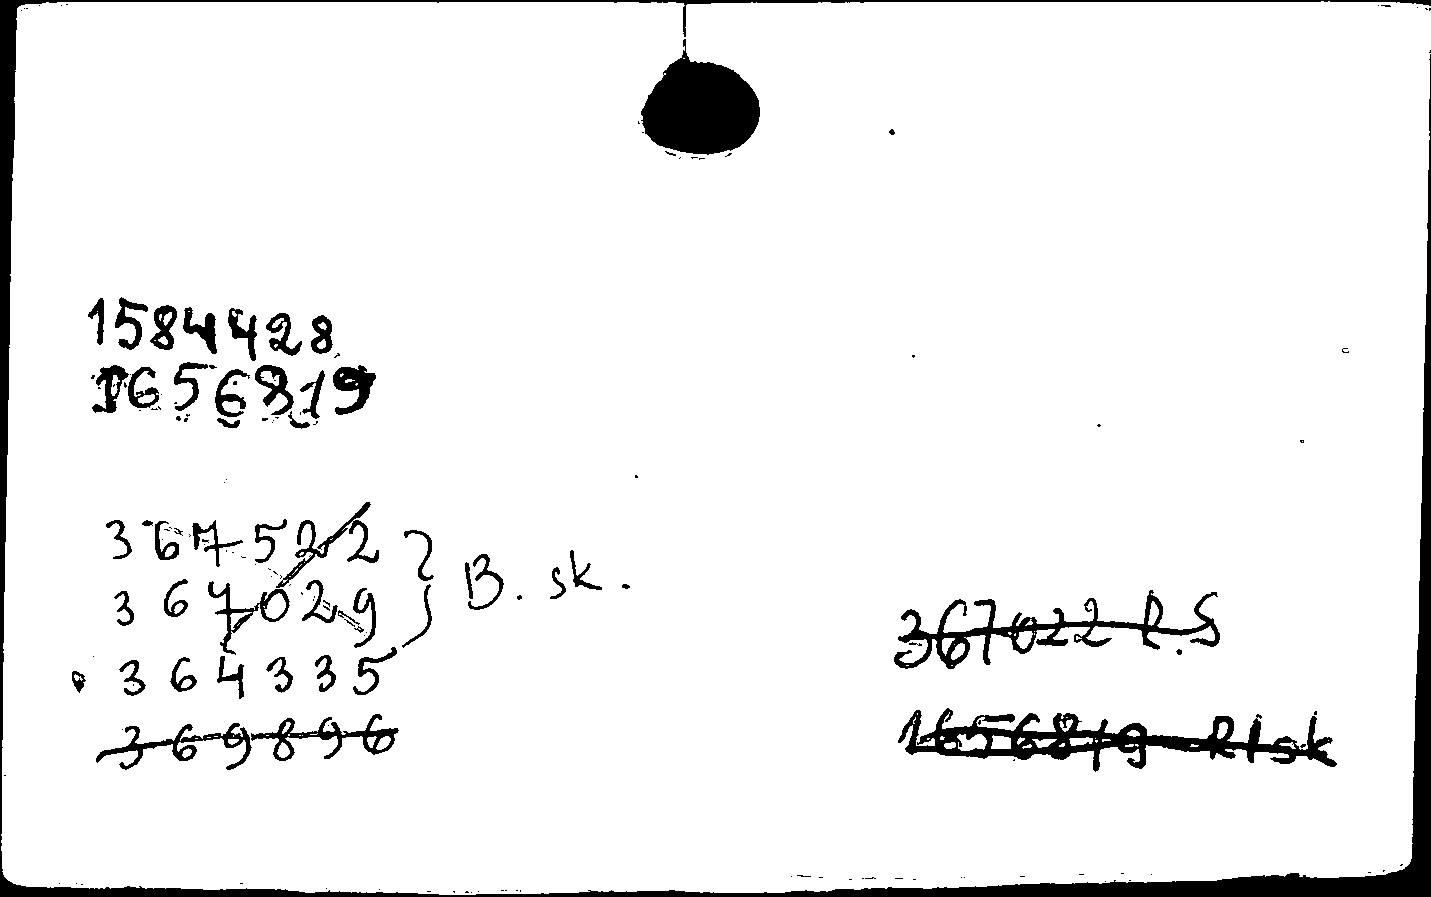 1584428
1656819
367522
367029
364335
369896
B. sk.
367022 R.S
1656819 R/sk